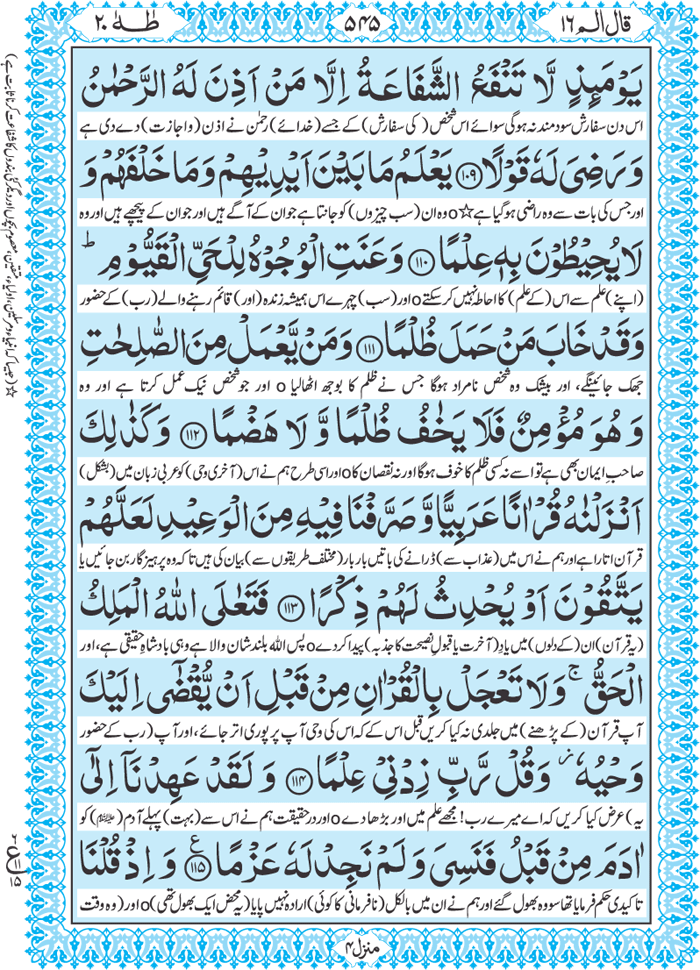 قال الم ۱۶
۵۴۵
طٰهٰ ۲۰
يَوْمَئِذٍ لَّا تَنْفَعُ الشَّفَاعَةُ اِلَّا مَنْ اَذِنَ لَهُ الرَّحْمٰنُ
اس دن سفارش سود مند نہ ہوگی سوائے اس شخص (کی سفارش) کے جسے (خدائے) رحمٰن نے اذن (و اجازت) دے دی ہے
وَ رَضِیَ لَهٗ قَوْلًا ۱۰۹ يَعْلَمُ مَا بَيْنَ اَيْدِيْهِمْ وَ مَا خَلْفَهُمْ وَ
اور جس کی بات سے وہ راضی ہوگیا ہے☆o وہ ان (سب چیزوں) کو جانتا ہے جو ان کے آگے ہیں اور جو ان کے پیچھے ہیں اور وہ
لَا يُحِيْطُوْنَ بِهٖ عِلْمًا ۱۱۰ وَ عَنَتِ الْوُجُوْهُ لِلْحَیِّ الْقَيُّوْمِ ؕ
(اپنے) علم سے اس (کے علم) کا احاطہ نہیں کرسکتےo اور (سب) چہرے اس ہمیشہ زندہ (اور) قائم رہنے والے (رب) کے حضور
وَ قَدْ خَابَ مَنْ حَمَلَ ظُلْمًا ۱۱۱ وَ مَنْ يَّعْمَلْ مِنَ الصّٰلِحٰتِ
جھک جائینگے، اور بیشک وہ شخص نامراد ہوگا جس نے ظلم کا بوجھ اٹھا لیاo اور جو شخص نیک عمل کرتا ہے اور وہ
وَ هُوَ مُؤْمِنٌ فَلَا يَخٰفُ ظُلْمًا وَّ لَا هَضْمًا ۱۱۲ وَ كَذٰلِكَ
صاحبِ ایمان بھی ہے تو اسے نہ کسی ظلم کا خوف ہوگا اور نہ نقصان کاo اور اسی طرح ہم نے اس (آخری وحی) کو عربی زبان میں (بشکل)
اَنْزَلْنٰهُ قُرْاٰنًا عَرَبِيًّا وَّ صَرَّفْنَا فِيْهِ مِنَ الْوَعِيْدِ لَعَلَّهُمْ
قرآن اتارا ہے اور ہم نے اس میں (عذاب سے) ڈرانے کی باتیں بار بار (مختلف طریقوں سے) بیان کی ہیں تاکہ وہ پرہیزگار بن جائیں یا
يَتَّقُوْنَ اَوْ يُحْدِثُ لَهُمْ ذِكْرًا ۱۱۳ فَتَعٰلَی اللّٰهُ الْمَلِكُ
(یہ قرآن) ان (کے دلوں) میں یادِ (آخرت یا قبولِ نصیحت کا جذبہ) پیدا کر دےo پس اللہ بلند شان والا ہے وہی بادشاہِ حقیقی ہے، اور
الْحَقُّ ۚ وَ لَا تَعْجَلْ بِالْقُرْاٰنِ مِنْ قَبْلِ اَنْ يُّقْضٰۤی اِلَيْكَ
آپ قرآن (کے پڑھنے) میں جلدی نہ کیا کریں قبل اس کے کہ اس کی وحی آپ پر پوری اتر جائے، اور آپ (رب کے حضور
وَحْيُهٗ ؗ وَ قُلْ رَّبِّ زِدْنِیْ عِلْمًا ۱۱۴ وَ لَقَدْ عَهِدْنَاۤ اِلٰۤی
یہ) عرض کیا کریں کہ اے میرے رب! مجھے علم میں اور بڑھا دےo اور درحقیقت ہم نے اس سے (بہت) پہلے آدم (علیہ السلام) کو
اٰدَمَ مِنْ قَبْلُ فَنَسِیَ وَ لَمْ نَجِدْ لَهٗ عَزْمًا ۱۱۵ ع وَ اِذْ قُلْنَا
تاکیدی حکم فرمایا تھا سو وہ بھول گئے اور ہم نے ان میں بالکل (نافرمانی کا کوئی) ارادہ نہیں پایا (یہ محض ایک بھول تھی)o اور (وہ وقت
منزل ۴